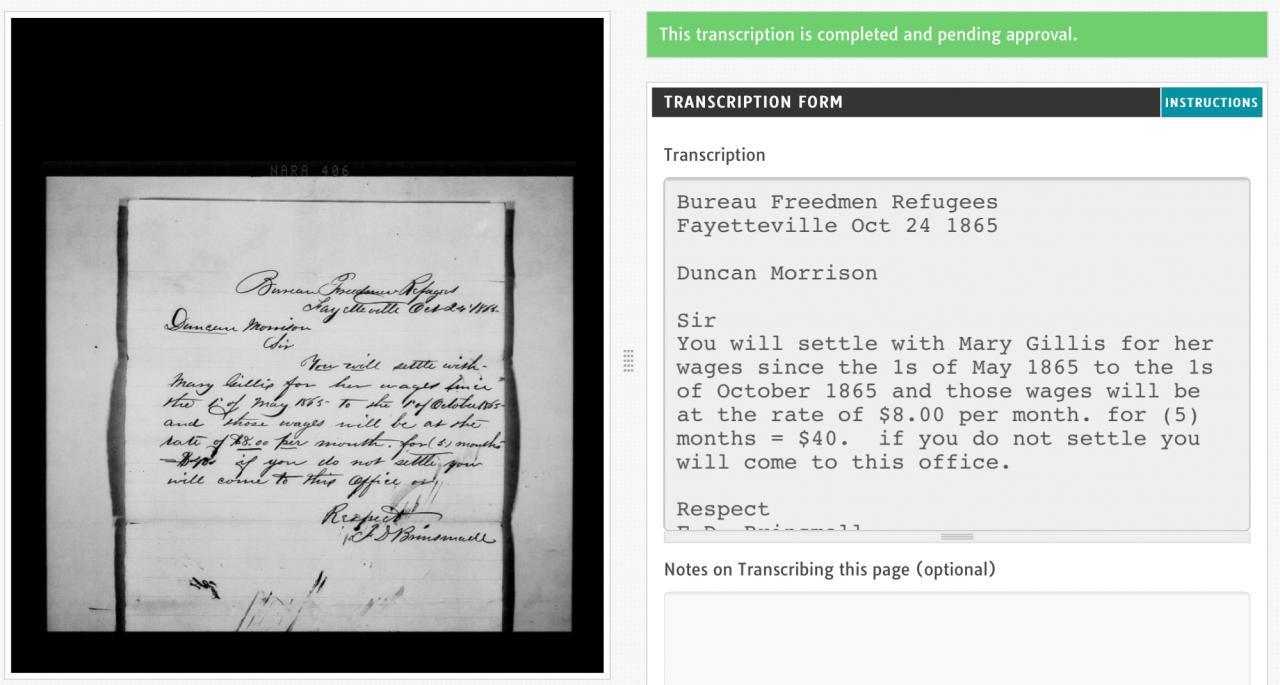 NARA 406
Bureau Freedmen Refugees
Fayetteville Oct 24 1865
Duncan Morrison
Sir
You will settle with
Mary Gillis for her wages since
the 1s of May 1865 to the 1s of October 1865
and those wages will be at the
rate of $8.00 per month. for (5) months
= $40 if you do not settle you
will come to this office
Respect
F D Brinsmade
This transcription is completed and pending approval.
TRANSCRIPTION FORM
INSTRUCTIONS
Transcription
Bureau Freedmen Refugees
Fayetteville Oct 24 1865
Duncan Morrison
Sir
You will settle with Mary Gillis for her
wages since the 1s of May 1865 to the 1s
of October 1865 and those wages will be
at the rate of $8.00 per month. for (5)
months = $40.  if you do not settle you
will come to this office.
Respect
Notes on Transcribing this page (optional)